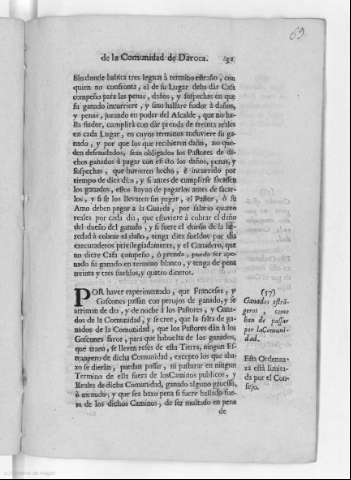 de la Comunidad de Daroca. 131
69
sso donde habita tres leguas à termino estraño, con
quien no confronta, el de su Lugar debe dàr Casa
compeño para las penas, daños, y suspechas en que
su ganado incurriere, y sino hallare fiador à daños,
y penas, jurando en poder del Alcalde, que no ha-
lla fiador, cumplirà con dàr prenda de treinta reales
en cada Lugar, en cuyos terminos anduviere su ga-
nado, y por que los que recibieren daño, no que-
den defraudados, sean obligados los Pastores de di-
chos ganados à pagar con efecto los daños, penas, y
suspechas, que huvieren hecho, è incurrido por
tiempo de diez dias, y si antes de cumplirse sacassen
los ganados, ellos hayan de pagarlos antes de sacar-
los, y si se los llevaren sin pagar, el Pastor, ò su
Amo deben pagar à la Guarda, por salario quatro
reales por cada dia, que estuviere à cobrar el daño
del dueño del ganado, y si fuere el dueño de la he-
redad à cobrar el daño, tenga diez sueldos por dia
executaderos privilegiadamente, y el Ganadero, que
no diere Casa compeño, ò prenda, puede ser pe-
nado su ganado en termino blanco, y tenga de pena
treinta y tres sueldos, y quatro dineros.
POR haver experimentado, que Franceses, y
Gascones passan con pretextos de ganado, y se
arriman de dia, y de noche à los Pastores, y Gana-
dos de la Comunidad, y se cree, que la falta de ga-
nados de la Comunidad, que los Pastores dàn à los
Gascones
para, que habuelta de los ganados,
que traen, se lleven reses de esta Tierra, ningun Es-
trangero de dicha Comunidad, excepto los que aba-
xo se diràn, puedan passar, ni pasturar en ningun
Termino de esta fuera de los Caminos publicos, y
Reales de dicha Comunidad, ganado alguno gruesso,
ò menudo, y que sea baxo pena si fuere hallado fue-
ra de los dichos Caminos, de ser multado en pena
de
(57)
Ganados estrã-
geros, como
han de passar
por la Comuni-
dad.
Esta Ordenan-
za està limita-
da por el Con-
sejo.